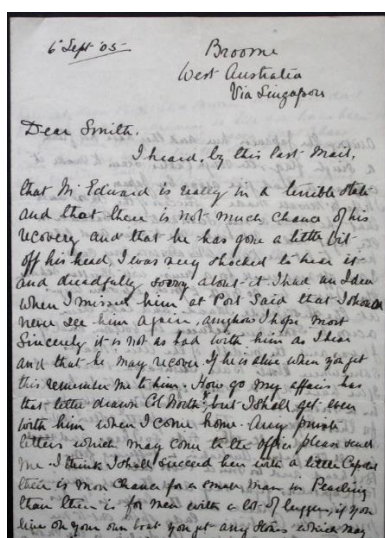 6 Sept '05-
Broome
West Australia
Via Singapore
Dear Smith.
I heard, by this last Mail,
that Mr Edward is really in a terrible state
and that there is not much chance of his
recovery and that he has gone a little bit
off his head, I was very shocked to hear it
and dreadfully sorry about it I had an Idea
when I missed him at Port Said that I should
never see him again, anyhow I hope most
Sincerely it is not as bad with him as I hear
and that he may recover. If he is alive when you get
this remember me to him. How go my affairs has
that letter drawn Col North? but I shall get even
with him when I come home. Any private
letters which may come to the office please send
me. I think I shall succeed here with a little Capital
there is more Chance for a small man in Pearling
than there is for men with a lot of luggers, if you
live on your own boat you get any Stones which may